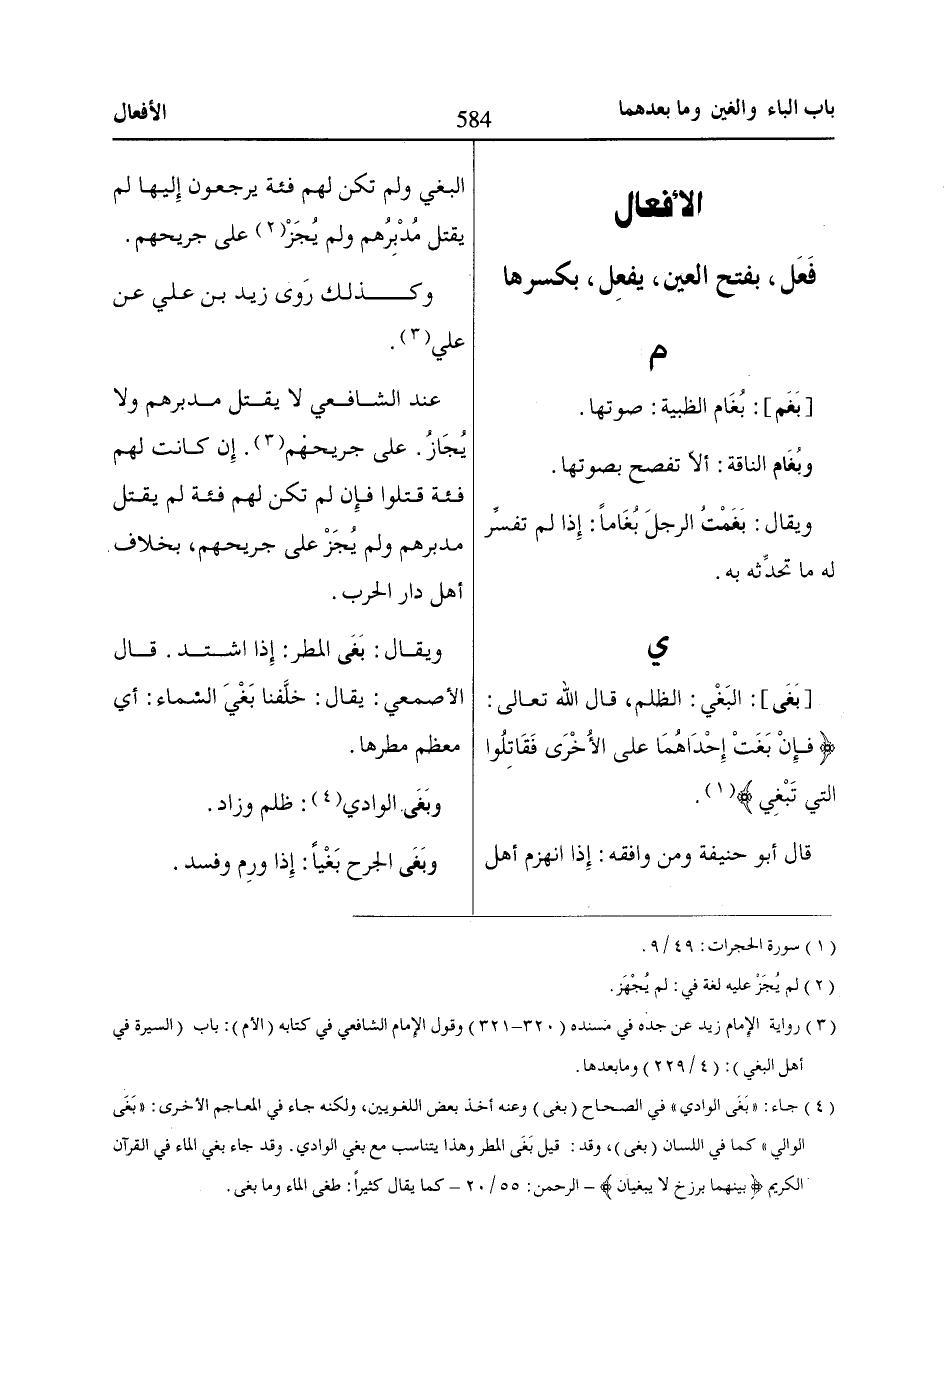 باب الباء والغين وما بعدهما
584
الأفعال
الأفعال
فَعَل، بفتح العين، يفعِل، بكسرها
م
[بَغَم]: بُغَام الظبية: صوتها.
وبُغَام الناقة: ألاّ تفصح بصوتها.
ويقال: بَغَمْتُ الرجلَ بُغَاماً: إذا لم تفسِّر
له ما تحدِّثه به.
ي
[بَغَى]: البَغْي: الظلم، قال الله تعالى:
﴿فإِنْ بَغَتْ إِحْدَاهُمَا على الأُخْرَى فَقَاتِلُوا
التي تَبْغِي﴾(١).
قال أبو حنيفة ومن وافقه: إذا انهزم أهل
البغي ولم تكن لهم فئة يرجعون إليها لم
يقتل مُدْبِرُهم ولم يُجَزْ(٢) على جريحهم.
وكذلك رَوَى زيد بن علي عن
علي(٣).
عند الشافعي لا يقتل مدبرهم ولا
يُجَازُ. على جريحهم(٣). إن كانت لهم
فئة قتلوا فإن لم تكن لهم فئة لم يقتل
مدبرهم ولم يُجَزْ على جريحهم، بخلاف
أهل دار الحرب.
ويقال: بَغَى المطر: إذا اشتد. قال
الأصمعي: يقال: خلَّفنا بَغْيَ السَّماء: أي
معظم مطرها.
وبَغَى الوادي(٤): ظلم وزاد.
وبَغَى الجرح بَغْياً: إذا ورِم وفسد.
(١) سورة الحجرات: ٤٩/ ٩.
(٢) لم يُجَزْ عليه لغة في: لم يُجْهَز.
(٣) رواية الإمام زيد عن جده في مسنده (٣٢٠–٣٢١) وقول الإمام الشافعي في كتابه (الأم): باب (السيرة في
أهل البغي): (٤/ ٢٢٩) ومابعدها.
(٤) جاء: «بَغَى الوادي» في الصحاح (بغى) وعنه أخذ بعض اللغويين، ولكنه جاء في المعاجم الأخرى: «بَغَى
الوالي» كما في اللسان (بغى)، وقد: قيل بَغَى المطر وهذا يتناسب مع بغي الوادي. وقد جاء بغي الماء في القرآن
الكريم ﴿بينهما برزخ لا يبغيان﴾ – الرحمن: ٥٥/ ٢٠ – كما يقال كثيراً: طغى الماء وما بغى.